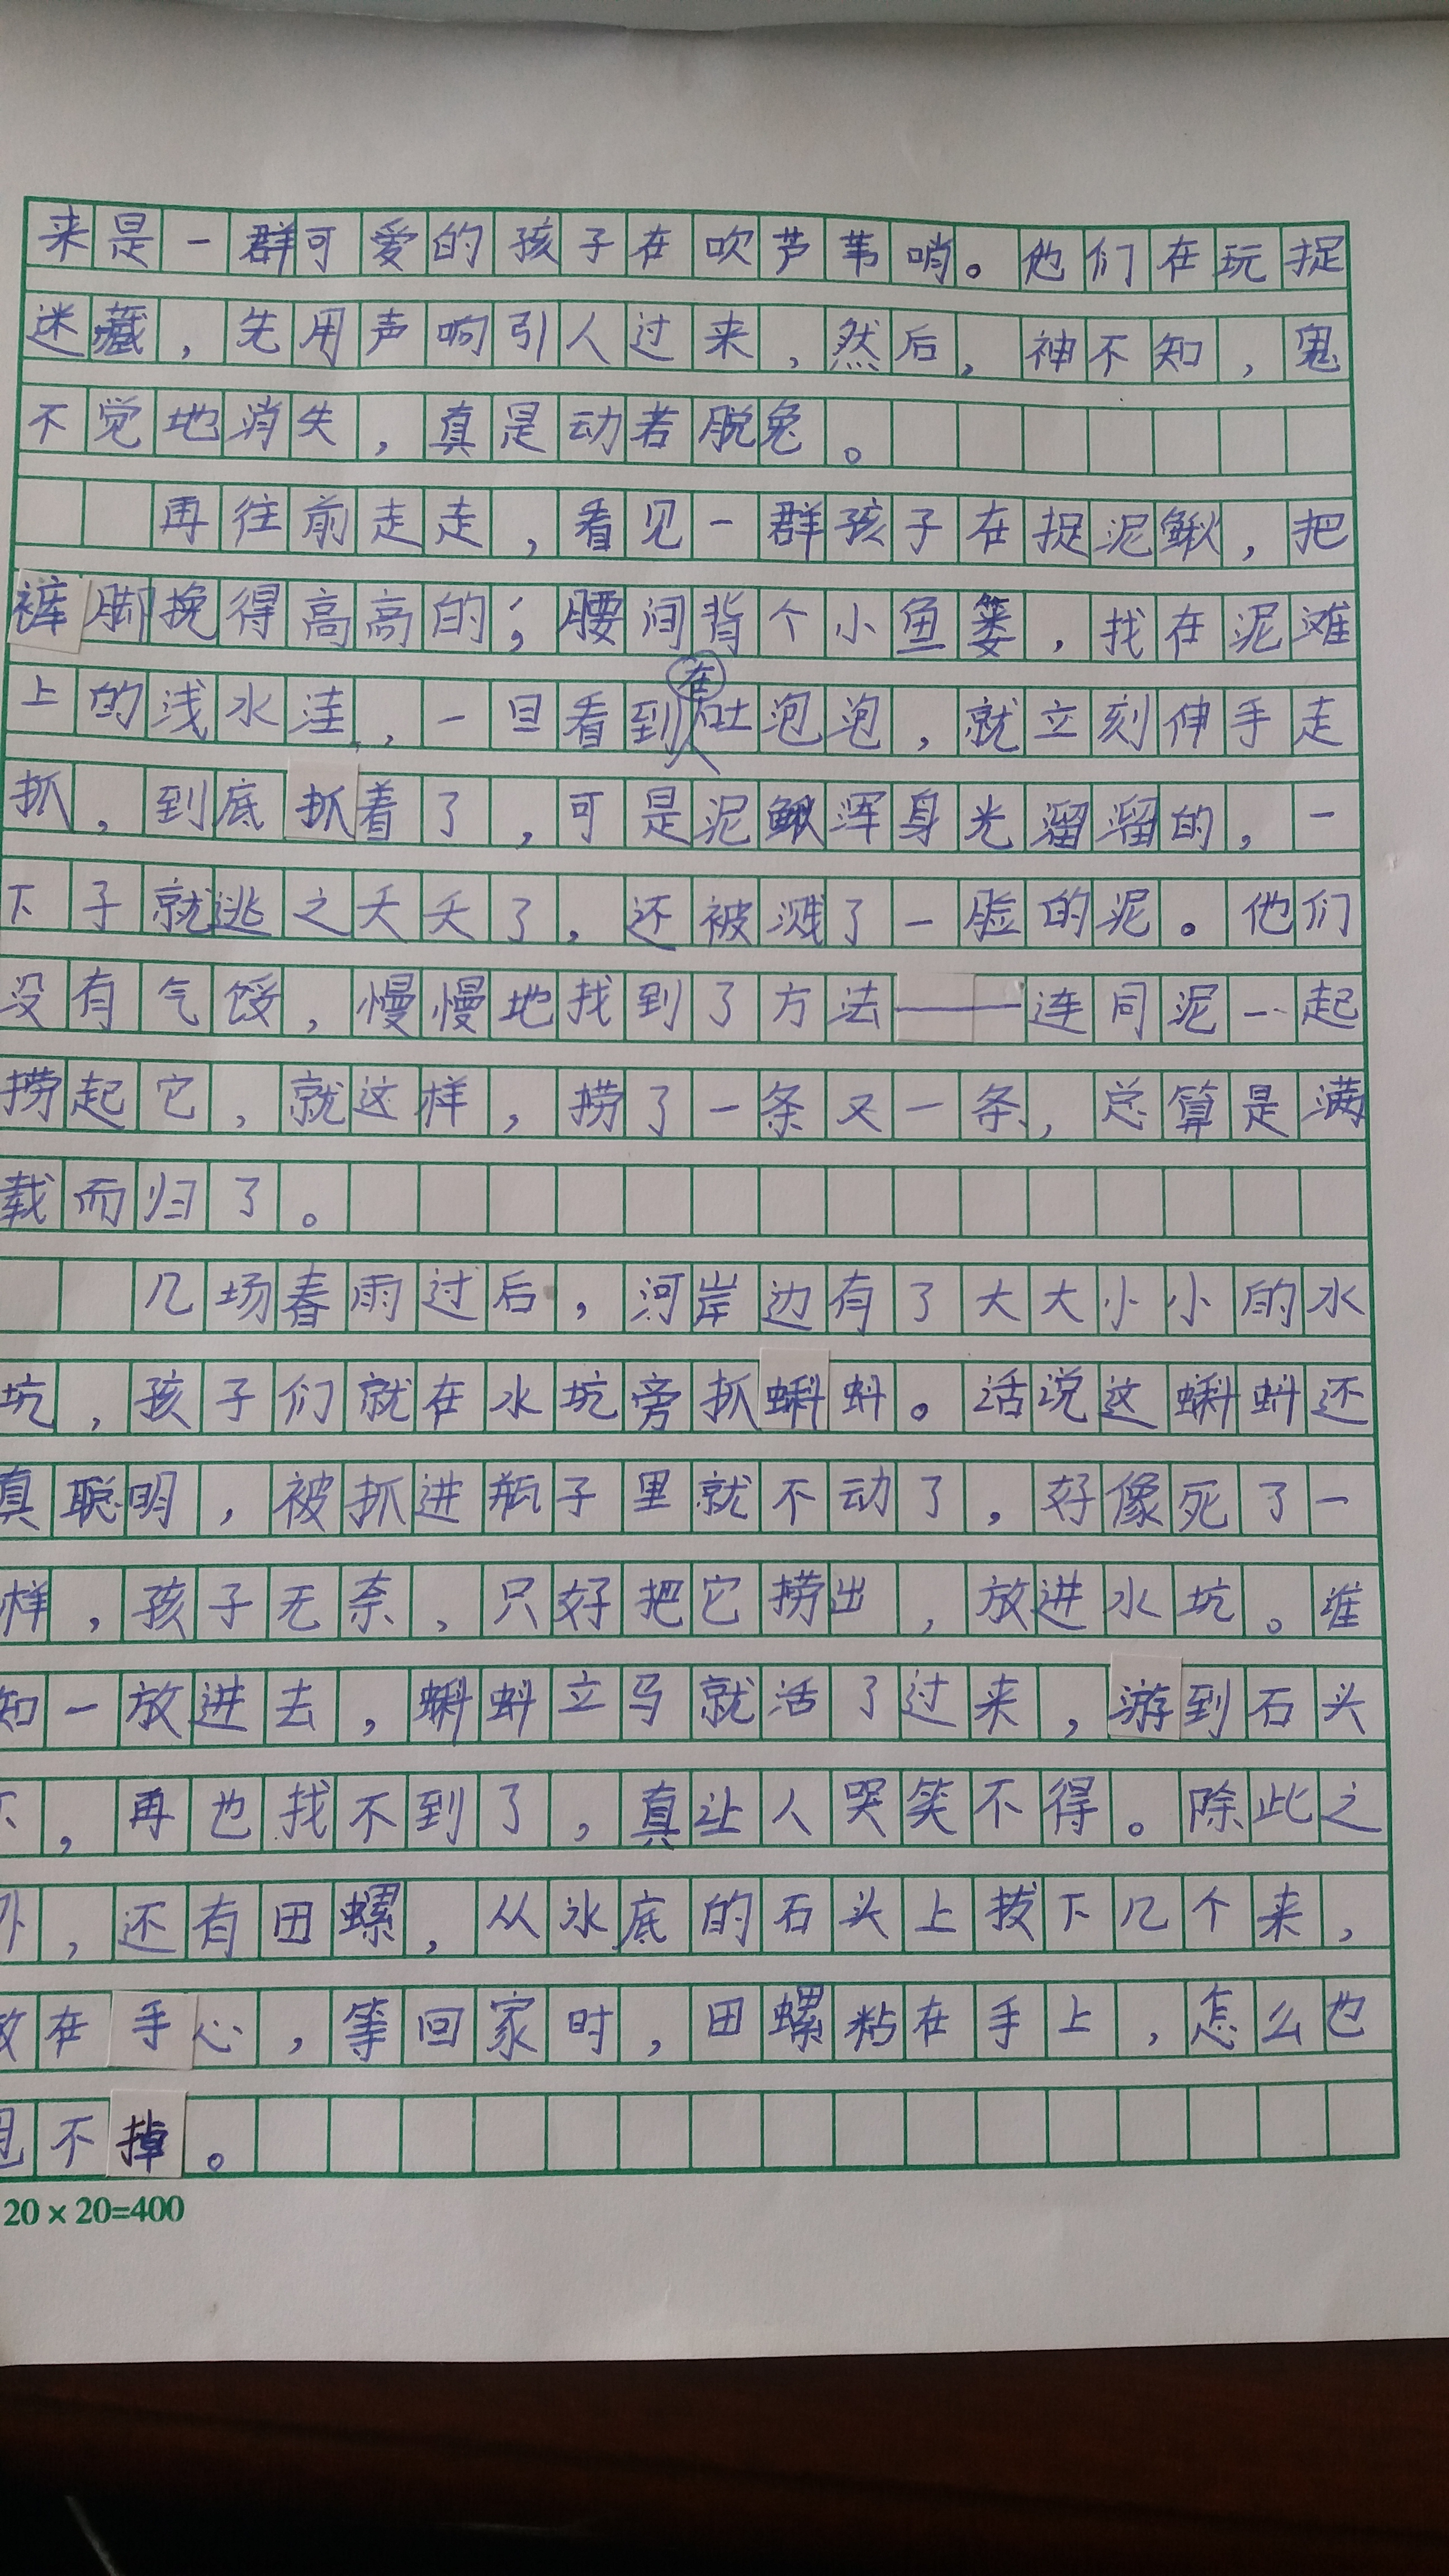 来是一群可爱的孩子在吹芦苇哨。他们在玩捉
迷藏,先用声响引人过来,然后,神不知,鬼
不觉地消失,真是动若脱兔。
再往前走走,看见一群孩子在捉泥鳅,把
裤脚挽得高高的;腰间背个小鱼篓,找在泥滩
上的浅水洼,一旦看到在吐泡泡,就立刻伸手走
抓,到底抓着了,可是泥鳅浑身光溜溜的,一
下子就逃之夭夭了,还被溅了一脸的泥。他们
没有气馁,慢慢地找到了方法——连同泥一起
捞起它,就这样,捞了一条又一条,总算是满
载而归了。
几场春雨过后,河岸边有了大大小小的水
坑,孩子们就在水坑旁抓蝌蚪。话说这蝌蚪还
真聪明,被抓进瓶子里就不动了,好像死了一
样,孩子无奈,只好把它捞出,放进水坑。谁
知一放进去,蝌蚪立马就活了过来,游到石头
下,再也找不到了,真让人哭笑不得。除此之
外,还有田螺,从水底的石头上拔下几个来,
放在手心,等回家时,田螺粘在手上,怎么也
甩不掉。
20×20=400